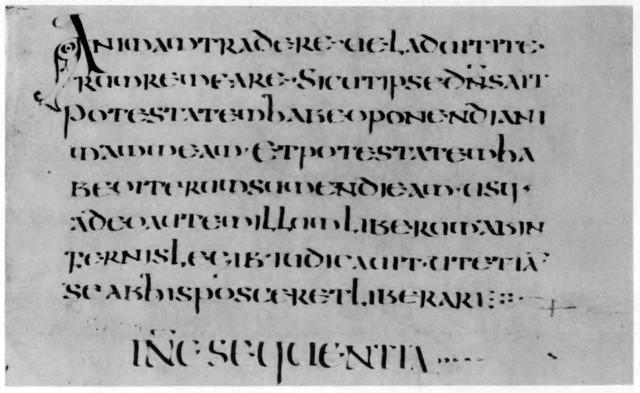 ANIMAMTRADERE·UELADUITITE·
RUMREMEARE·SICUTIPSEDN̄SAIT
POTESTATEMHABEOPONENDIANI
MAMMEAM·ETPOTESTATEMHA
BEOITERUMSUMENDIEAM·USQ·
ADEOAUTEMILLUMLIBERUMABIN
FERNISLEGIB·IUDICAUIT·UTETIĀ
SEABHISPOSCERETLIBERARI:
IN̄C SEQUENTIA....